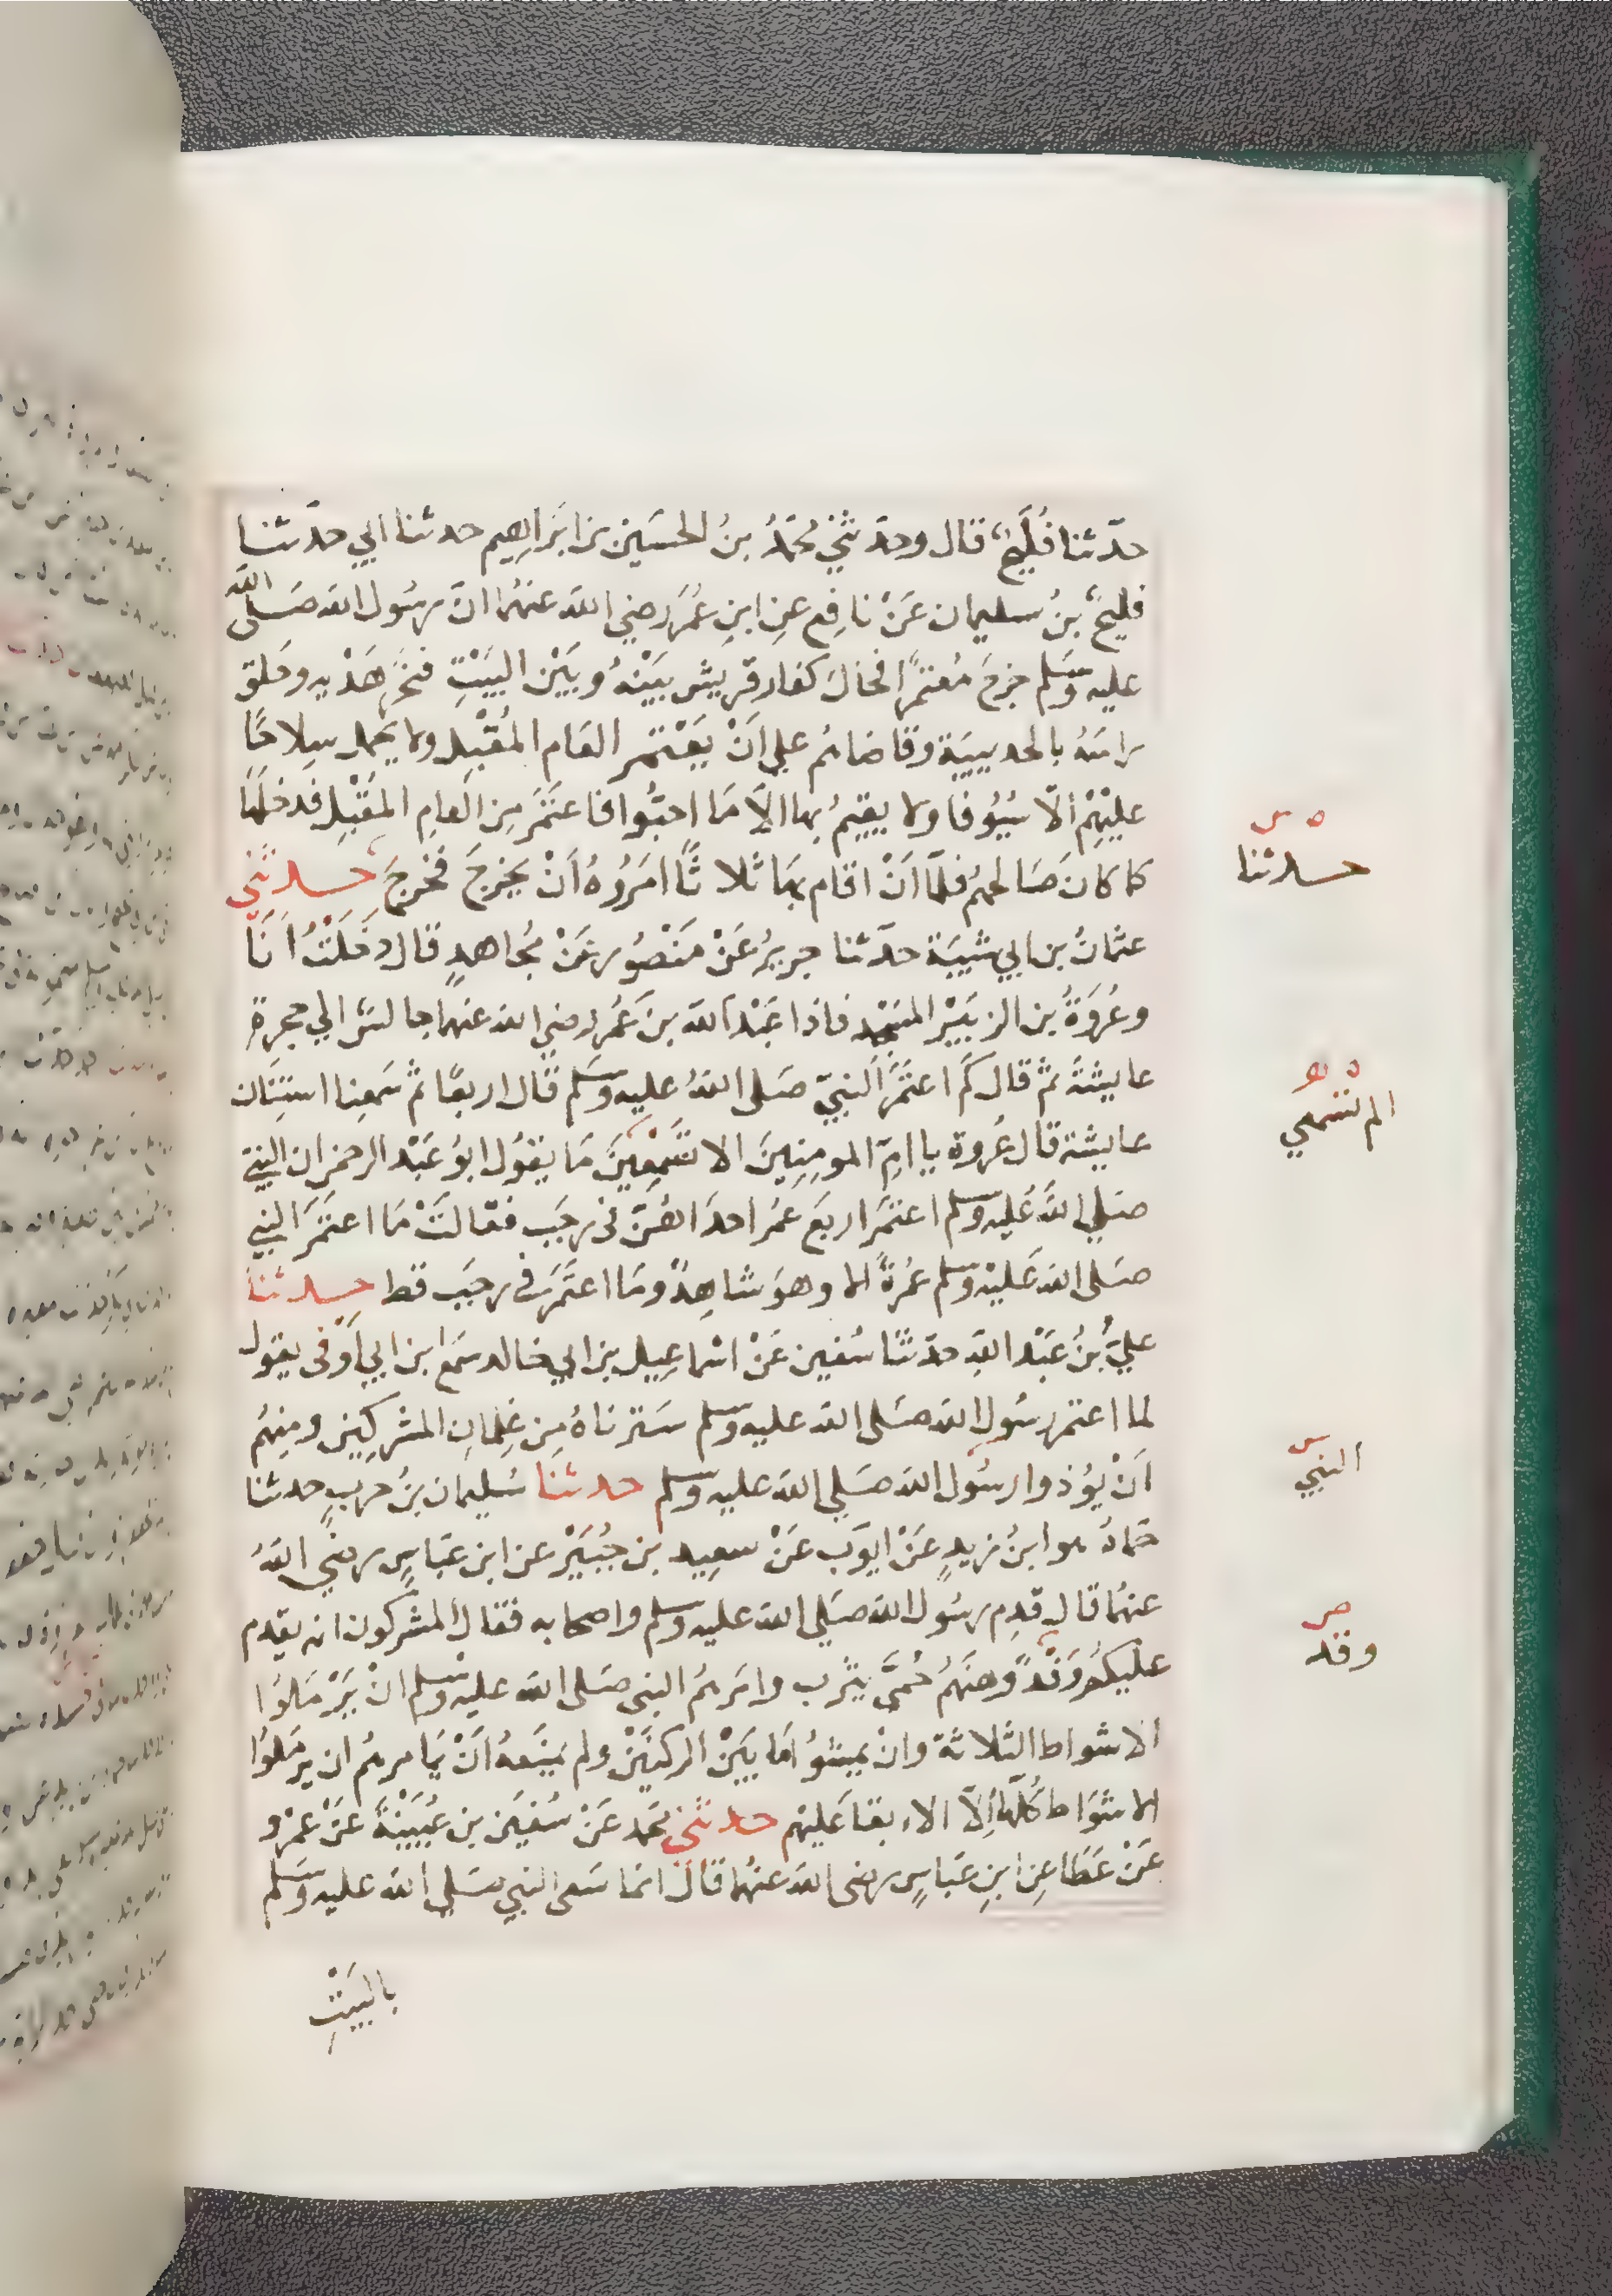 حدّثنا فُلَيحٌ قال وحدّثني مُحَمَّدُ بنُ الحسَين بن ابرَاهِيم حدثنا ابي حدّثنا
فليحُ بنُ سليمان عَنْ نافِع عِن ابنِ عُمَرَ رضي الله عنهُما انّ رسُول الله صَلى الله
عليه وَسَلم خرجَ مُعتمرًا فحَالَ كفار قريش بَيْنَهُ وبَيْن البَيْتِ فنحَرَ هَدْيه وحَلق
راسَهُ بالحديبيَة وقاضاهُم علي اَنْ يَعْتمر العَام المُقْبِل ولا يَحمل سِلاحًا
عليْهِمْ الّا سُيُوفا ولا يقيمُ بها الاّ مَا احبُّوا فاعتَمَر مِن العَامِ المقْبِلِ فدخلَهَا
كما كان صَالحهُم فلمّا اَنْ اقام بهَا ثلاثًا امَرُوهُ اَنْ يَخرجَ فخرجَ حدثني
عثمانُ بن ابي شيبَة حدّثنا جريرٌ عَنْ مَنْصُور عَنْ مُجاهدٍ قال دخَلْتُ اَنَا
وعُروَةُ بن الزبَيْر المسْجد فاذا عَبْد الله بن عُمَر رضي الله عنهما جالسٌ الي حجرة
عايشةَ ثم قال كَم اعتَمَرَ النبيّ صَلى اللهُ عليه وَسَلم قال اربعًا ثم سَمعنا استِنَان
عايشة قال عُروة يا امّ المومِنِينَ الا تَسْمَعِينَ مَا يقوُل ابوُ عَبْد الرحمن ان النبيّ
صَلي اللهُ عَليه وسَلم اعتمَرَ اربَع عمَر احدَاهُنّ في رجَب فقالَتْ مَا اعتَمَرَ النبي
صَلى الله عَليْه وسَلم عُمْرَةً الا وهوَ شاهِدُهُ ومَا اعتمَرَ في رجَب قط حدثنا
عليُّ بنُ عَبْد اللهِ حدّثنَا سُفين عَنْ اسْماعِيل بن ابي خالد سَمعَ ابن ابي اَوْفى يقول
لما اعتمر رسُول الله صَلى الله عليه وسلم سَترناهُ مِن غِلمانِ المشركِين ومِنهُم
اَنْ يُؤذوا رسُول الله صَلي الله عليه وسلم حدثنا سُليمان بنُ حربٍ حدثنا
حَمادٌ هوابنُ زيدٍ عَنْ ايوَّب عَنْ سعِيد بن جُبَيْر عن ابن عبَاسٍ رضي اللهُ
عنهُما قال قدِم رسُول الله صَلي الله عليه وسلم واصحابه فقال المشركون انه يقدم
عليكُم وَفْدٌ وهنَهُم حُمىّ يثرب وامَرهُم النبي صَلى الله عليه وسْلم انْ يَرْمَلوُا
الاشواط الثلاثة وانْ يمشوُا مَا بَيْن الركنَيْن ولم يمنَعهُ اَنْ يَامرهُم ان يرمَلوُا
الاشوَاط كُلّها اِلاّ الابقا عَليْهم حدثني مُحمد عَنْ سُفيَن بن عُيَيْنةَ عَنْ عَمْرو
عَنْ عَطَا عِن ابنِ عَبَاسٍ رضى الله عنهُما قال انما سَعى النبي صَلي الله عليه وَسَلم
بالبَيْتِ
ه س
حدثنا
ه هـ
الم تسمعي
س
النبي
ص
وقد